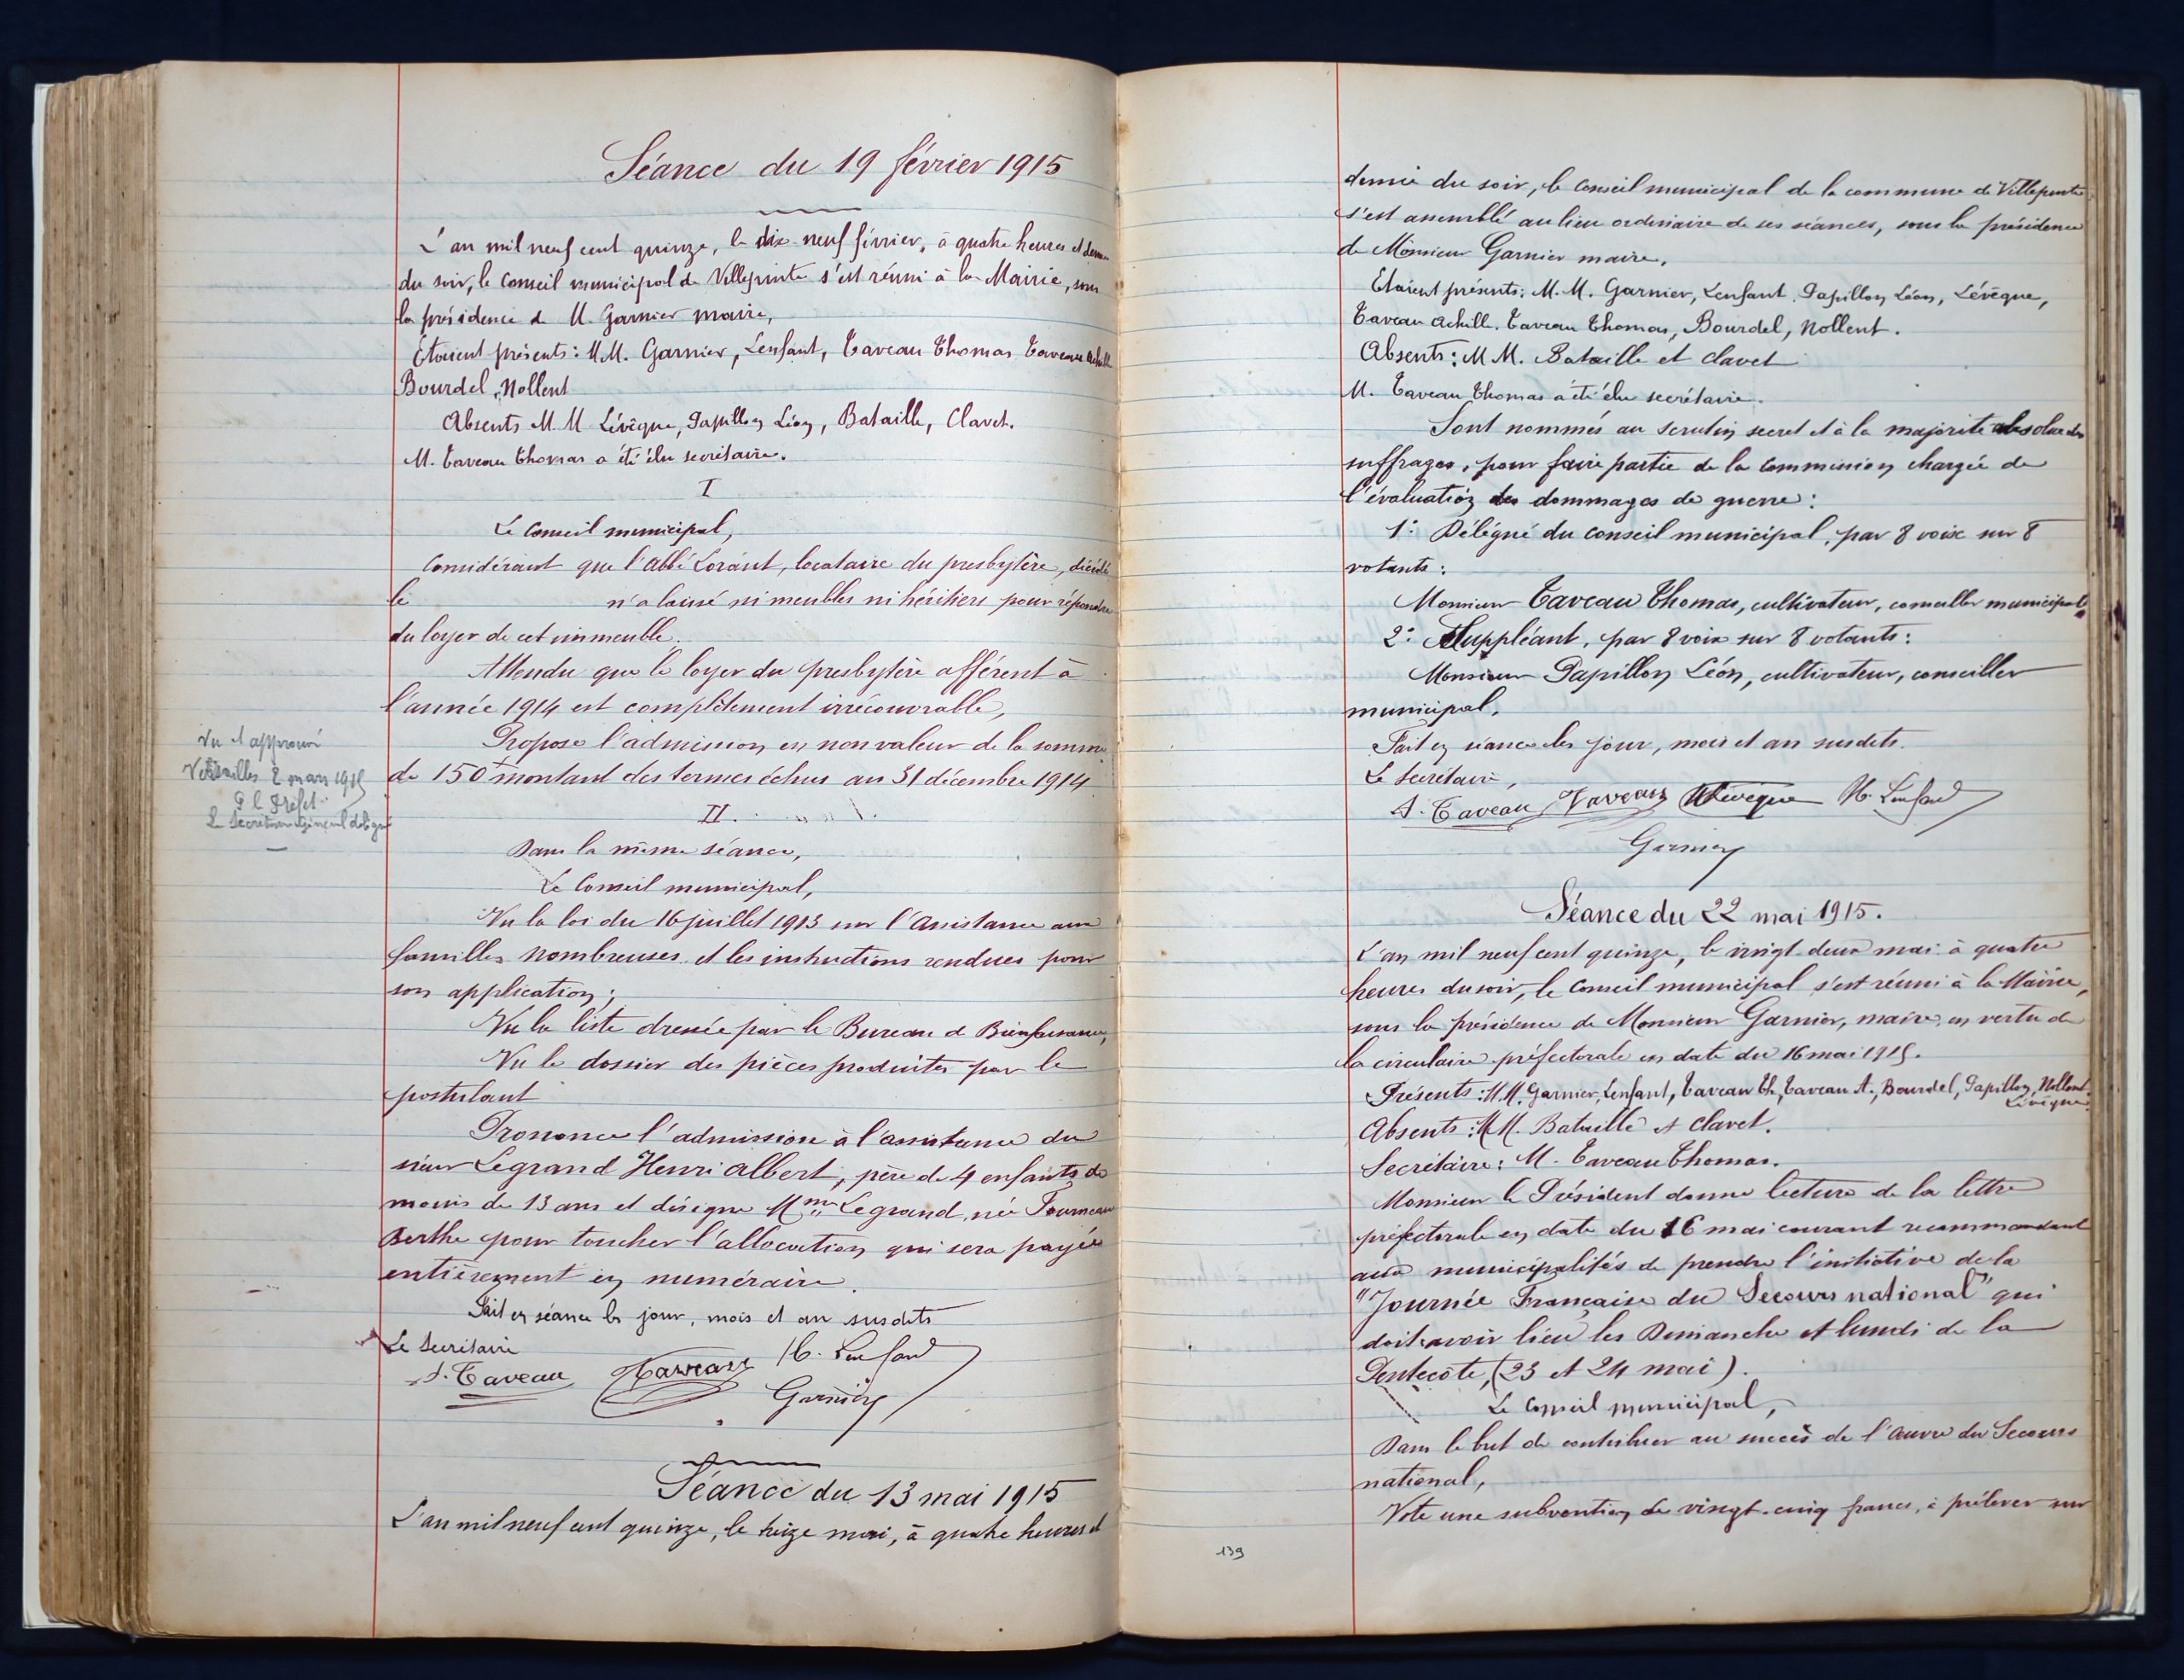 Séance du 19 février 1915
L'an mil neuf cent quinze, le dix-neuf février, à quatre heures et demie
du soir, le Conseil municipal de Villepinte s'est réuni à la Mairie, sous
la présidence de M. Garnier maire,
Étaient présents : M.M. Garnier, Lenfant, Taveau Thomas, Taveau Achille
Bourdel, Nollent
Absents M.M Lévêque, Papillon Léon, Bataille, Clavet.
M. Taveau Thomas a été élu secrétaire.
I
Le Conseil municipal,
Considérant que l'abbé Lorant, locataire du presbytère, décédé
le n'a laissé ni meubles ni héritiers pour répondre
du loyer de cet immeuble.
Attendu que le loyer du presbytère afférent à
l'année 1914 est complètement irrécouvrable,
Propose l'admission en non valeur de la somme
de 150f montant des termes échus au 31 décembre 1914
Vu et approuvé
Versailles 2 mars 1915
P le Préfet
Le Secrétaire Général délégué
II.
Dans la même séance,
Le Conseil municipal,
Vu la loi du 16 juillet 1913 sur l'Assistance aux
familles nombreuses et les instructions rendues pour
son application ;
Vu la liste dressée par le Bureau de Bienfaisance,
Vu le dossier des pièces produites par le
postulant
Prononce l'admission à l'assistance du
sieur Legrand Henri Albert, père de 4 enfants de
moins de 13 ans et désigne Mme Legrand, née Fourneau
Berthe pour toucher l'allocation qui sera payée
entièrement en numéraire.
Fait en séance les jour, mois et an susdits
Le Secrétaire
T. Taveau Taveau H. Lenfant
Garnier
Séance du 13 mai 1915
L'an mil neuf cent quinze, le treize mai, à quatre heures et
demie du soir, le Conseil municipal de la commune de Villepinte
s'est assemblé au lieu ordinaire de ses séances, sous la présidence
de Monsieur Garnier maire.
Etaient présents : M.M. Garnier, Lenfant, Papillon Léon, Lévêque,
Taveau Achille, Taveau Thomas, Bourdel, Nollent.
Absents : M M. Bataille et Clavet
M. Taveau Thomas a été élu secrétaire.
Sont nommés au scrutin secret et à la majorité absolue des
suffrages, pour faire partie de la Commission chargée de
l'évaluation des dommages de guerre :
1° Délégué du conseil municipal, par 8 voix sur 8
votants :
Monsieur Taveau Thomas, cultivateur, conseiller municipal
2° Suppléant, par 8 voix sur 8 votants :
Monsieur Papillon Léon, cultivateur, conseiller
municipal.
Fait en séance les jour, mois et an susdits.
Le Secrétaire,
T. Taveau Taveau Lévêque H. Lenfant
Garnier
Séance du 22 mai 1915.
L'an mil neuf cent quinze, le vingt-deux mai à quatre
heures du soir, le Conseil municipal s'est réuni à la Mairie,
sous la présidence de Monsieur Garnier, maire, en vertu de
la circulaire préfectorale en date du 16 mai 1915.
Présents : M.M. Garnier, Lenfant, Taveau Th, Taveau A., Bourdel, Papillon, Nollent
Lévêque
Absents : MM. Bataille et Clavet.
Secrétaire : M. Taveau Thomas.
Monsieur le Président donne lecture de la lettre
préfectorale en date du 16 mai courant recommandant
aux municipalités de prendre l'initiative de la
"Journée Française du Secours national" qui
doit avoir lieu les Dimanche et lundi de la
Pentecôte, (23 et 24 mai).
Le Conseil municipal,
Dans le but de contribuer au succès de l'Œuvre du Secours
national,
Vote une subvention de vingt-cinq francs, à prélever sur
139